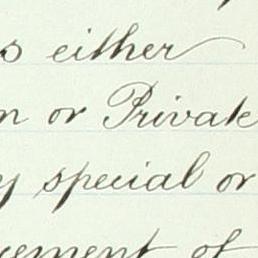 s either
n or Private
y special or
cement of